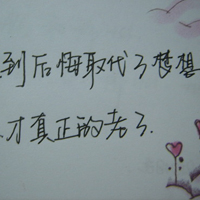 到后悔取代了梦想
才真正的老了.